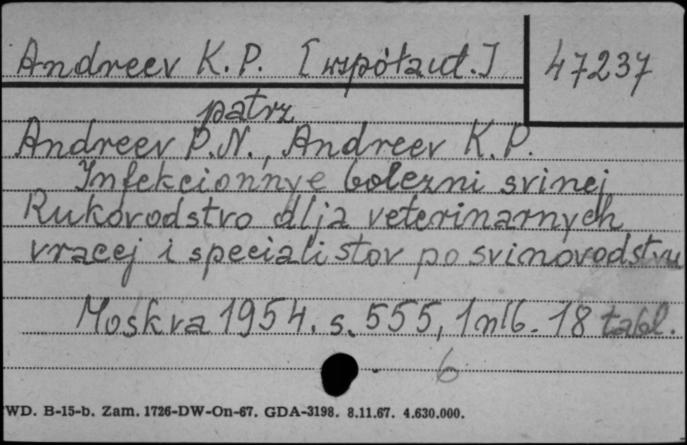 Andreev K.P. [współaut.] 47237
patrz
Andreev P.N., Andreev K.P.
Infekcionnye bolezni svinej
Rukovodstvo dlja veterinarnych
vracej i specialistov po svinovodstvu
Moskva 1954. s. 555, 1 nlb. 18 tabl.
6
WD. B-15-b. Zam. 1726-DW-On-67. GDA-3198. 8.11.67. 4.630.000.